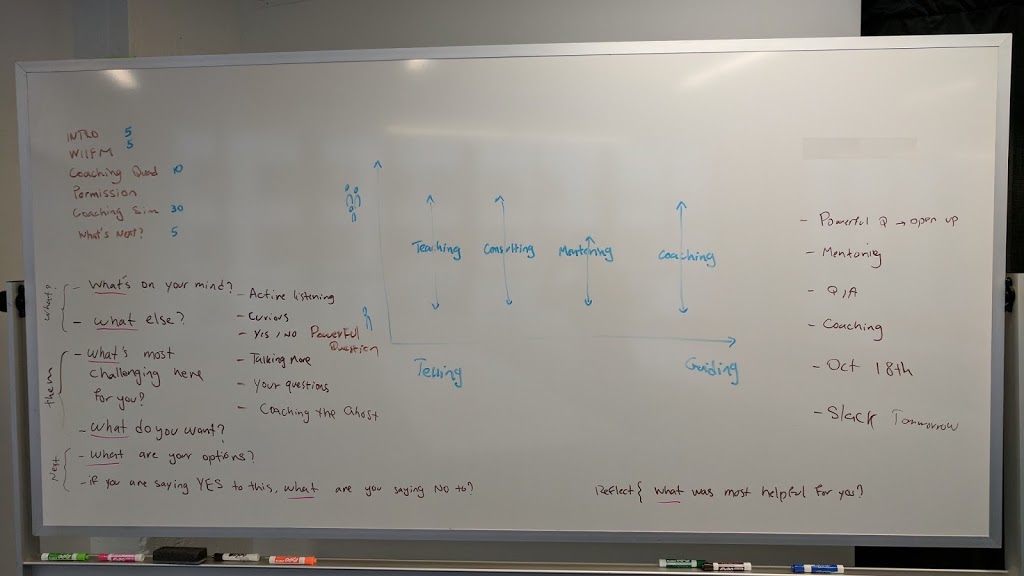 INTRO 5
WIIFM 5
Coaching Quad 10
Permission
Coaching Sim 30
What's Next? 5
What?
- What's on your mind?
- what else?
them
- what's most
challenging here
for you?
- what do you want?
Next
- what are your options?
- if you are saying YES to this, what are you saying NO to?
- Active listening
- Curious
- Yes, No Powerful
Question
- Talking more
- Your questions
- Coaching the Ghost
Teaching
Consulting
Mentoring
Coaching
Telling
Guiding
- Powerful Q → open up
- Mentoring
- Q,A
- Coaching
- Oct 18th
- Slack Tomorrow
Reflect { what was most helpful for you?